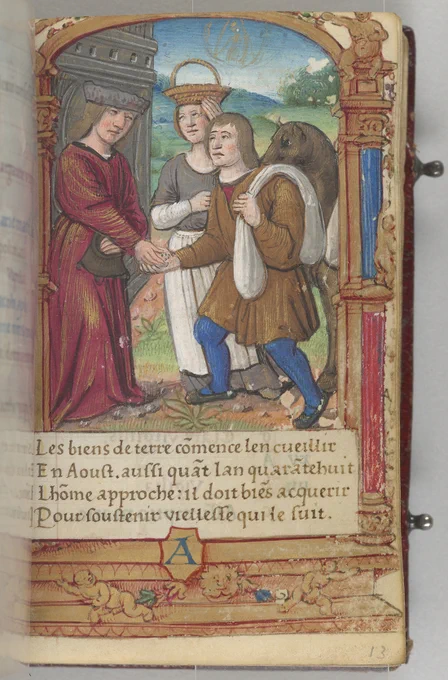 Les biens de terre cõmence len cueillir
En Aoust. aussi quãt lan quarãtehuit
Lhõme approche: il doit biẽs acquerir
Pour soustenir viellesse qui le suit.
A
13